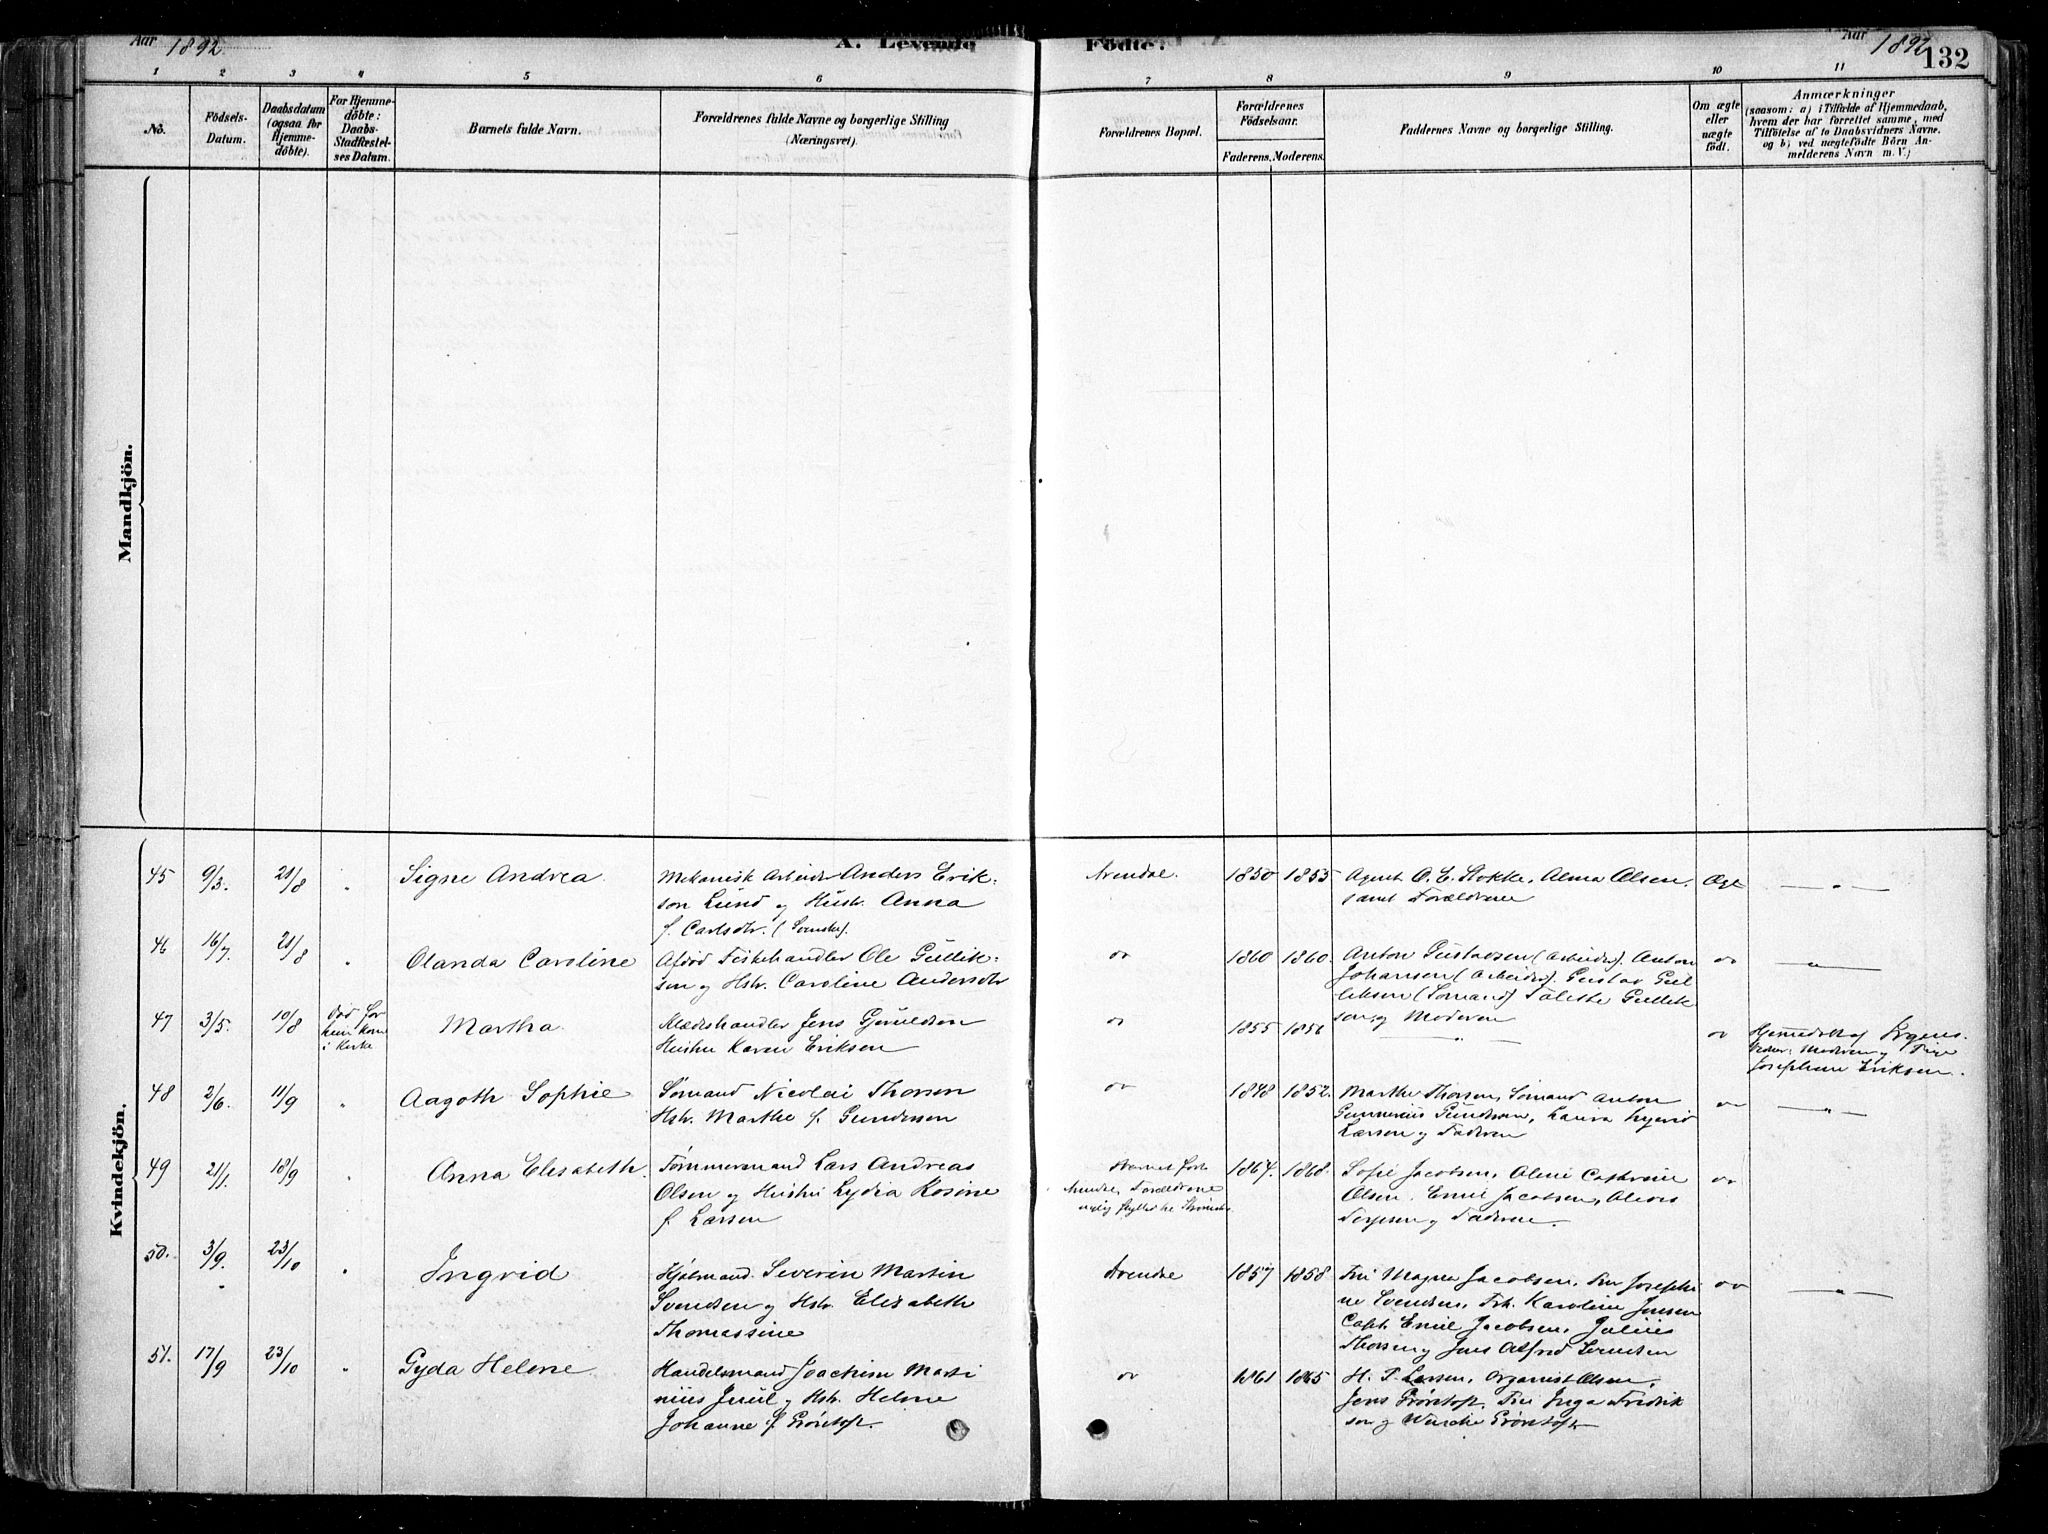 Aar 1892. A. Levende Födte. Aar 1892 132
1 2 3 4 5 6 7 8 9 10 11
No.
Födsels-Datum.
Daabsdatum (ogsaa for Hjemme-döbte).
For Hjemme-döbte: Daabs-Stadfæstel-ses Datum.
Barnets fulde Navn.
Forældrenes fulde Navne og borgerlige Stilling
(Næringsvei).
Forældrenes Bopæl.
Forældrenes Födselsaar.
Faderens. Moderens.
Faddernes Navne og borgerlige Stilling.
Om ægte eller uægte födt.
Anmærkninger
(saasom: a) i Tilfælde af Hjemmedaab,
hvem der har forrettet samme, med
Tilföielse af to Daabsvidners Navne.
og b) ved uægtefödte Börn An-
melderens Navn m. V.)
Mandkjön.
Kvindekjön.
45 9/3. 21/8 " Signe Andrea Mekanisk Arbeider Anders Erik- Arendal. 1850 1855 Agent O. E. Stokke, Alma Olsen. Ægt — " —
son Lund og Hustr. Anna samt Forældrene
f. Carlsdtr. (Svenske).
46 16/7. 21/8 " Olanda Caroline Afdød Fiskehandler Ole Gullik- " 1860 1860. Anton Gustavsen (Arbeider). Anton " — " —
sen og Hstr. Caroline Andersdtr Johansen (Arbeider). Gustav Gul
liksen (Sømand) Gullik
sen og Moderen
47 3/5. 10/8 død før hun kom i Kirke Martha. Klædeshandler Jens Gjeruldsen " 1855 1856 — " — "
Hustru Karen Eriksen
Moderen og
Josephine Eriksen.
48 2/6. 11/9 " Aagoth Sophie Sømand Nicolai Thorsen " 1848 1852. Marthe Thorsen, Sømand Anton " — " —
Hstr. Marthe f. Gundersen Gunnerius Gundersen, Laura
Larsen og Faderen
49 21/1. 18/9 " Anna Elisabeth. Tømmermand Lars Andreas Barnet født 1864. 1868. Sofie Jacobsen, Aline Cathrine "
Olsen og Hustru Lydia Rosine Arendal, Forældrene Olsen. Emil Jacobsen,
f. Larsen nylig flyttet til Terjesen og Faderen.
50. 3/9. 23/10 " Ingrid Hjulmand. Severin Martin Arendal 1857 1858 Fru Magna Jacobsen. Fru Josephi " — " —
Svendsen og Hstr. Elisabeth ne Svendsen. Frk. Karoline Jensen
Thomassine Capt. Emil Jacobsen. Julius
Thorsen og Jens Alfred Svendsen
51. 17/9 23/10 " Gyda Helene Handelsmand Joachim Marti " 1861 1865 H. P. Larsen. Organist Olsen.
nius Juul og Hstr. Helene Jens Grøntoft. Fru Inga Fredrik
Johanne f. Grøntoft. sen og Grøntoft